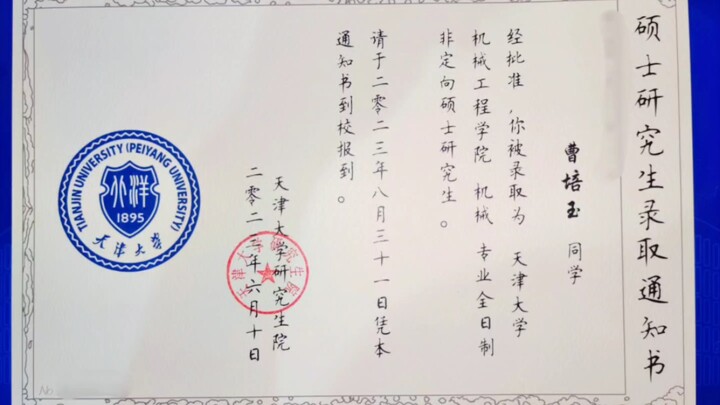 硕士研究生录取通知书
曹培玉 同学
经批准,你被录取为 天津大学
机械工程学院 机械 专业全日制
非定向硕士研究生。
请于二零二三年八月三十一日凭本
通知书到校报到。
天津大学研究生院
二零二三年六月十日
天津大学研究生院
TIANJIN UNIVERSITY (PEIYANG UNIVERSITY)
北洋
1895
天津大学
No